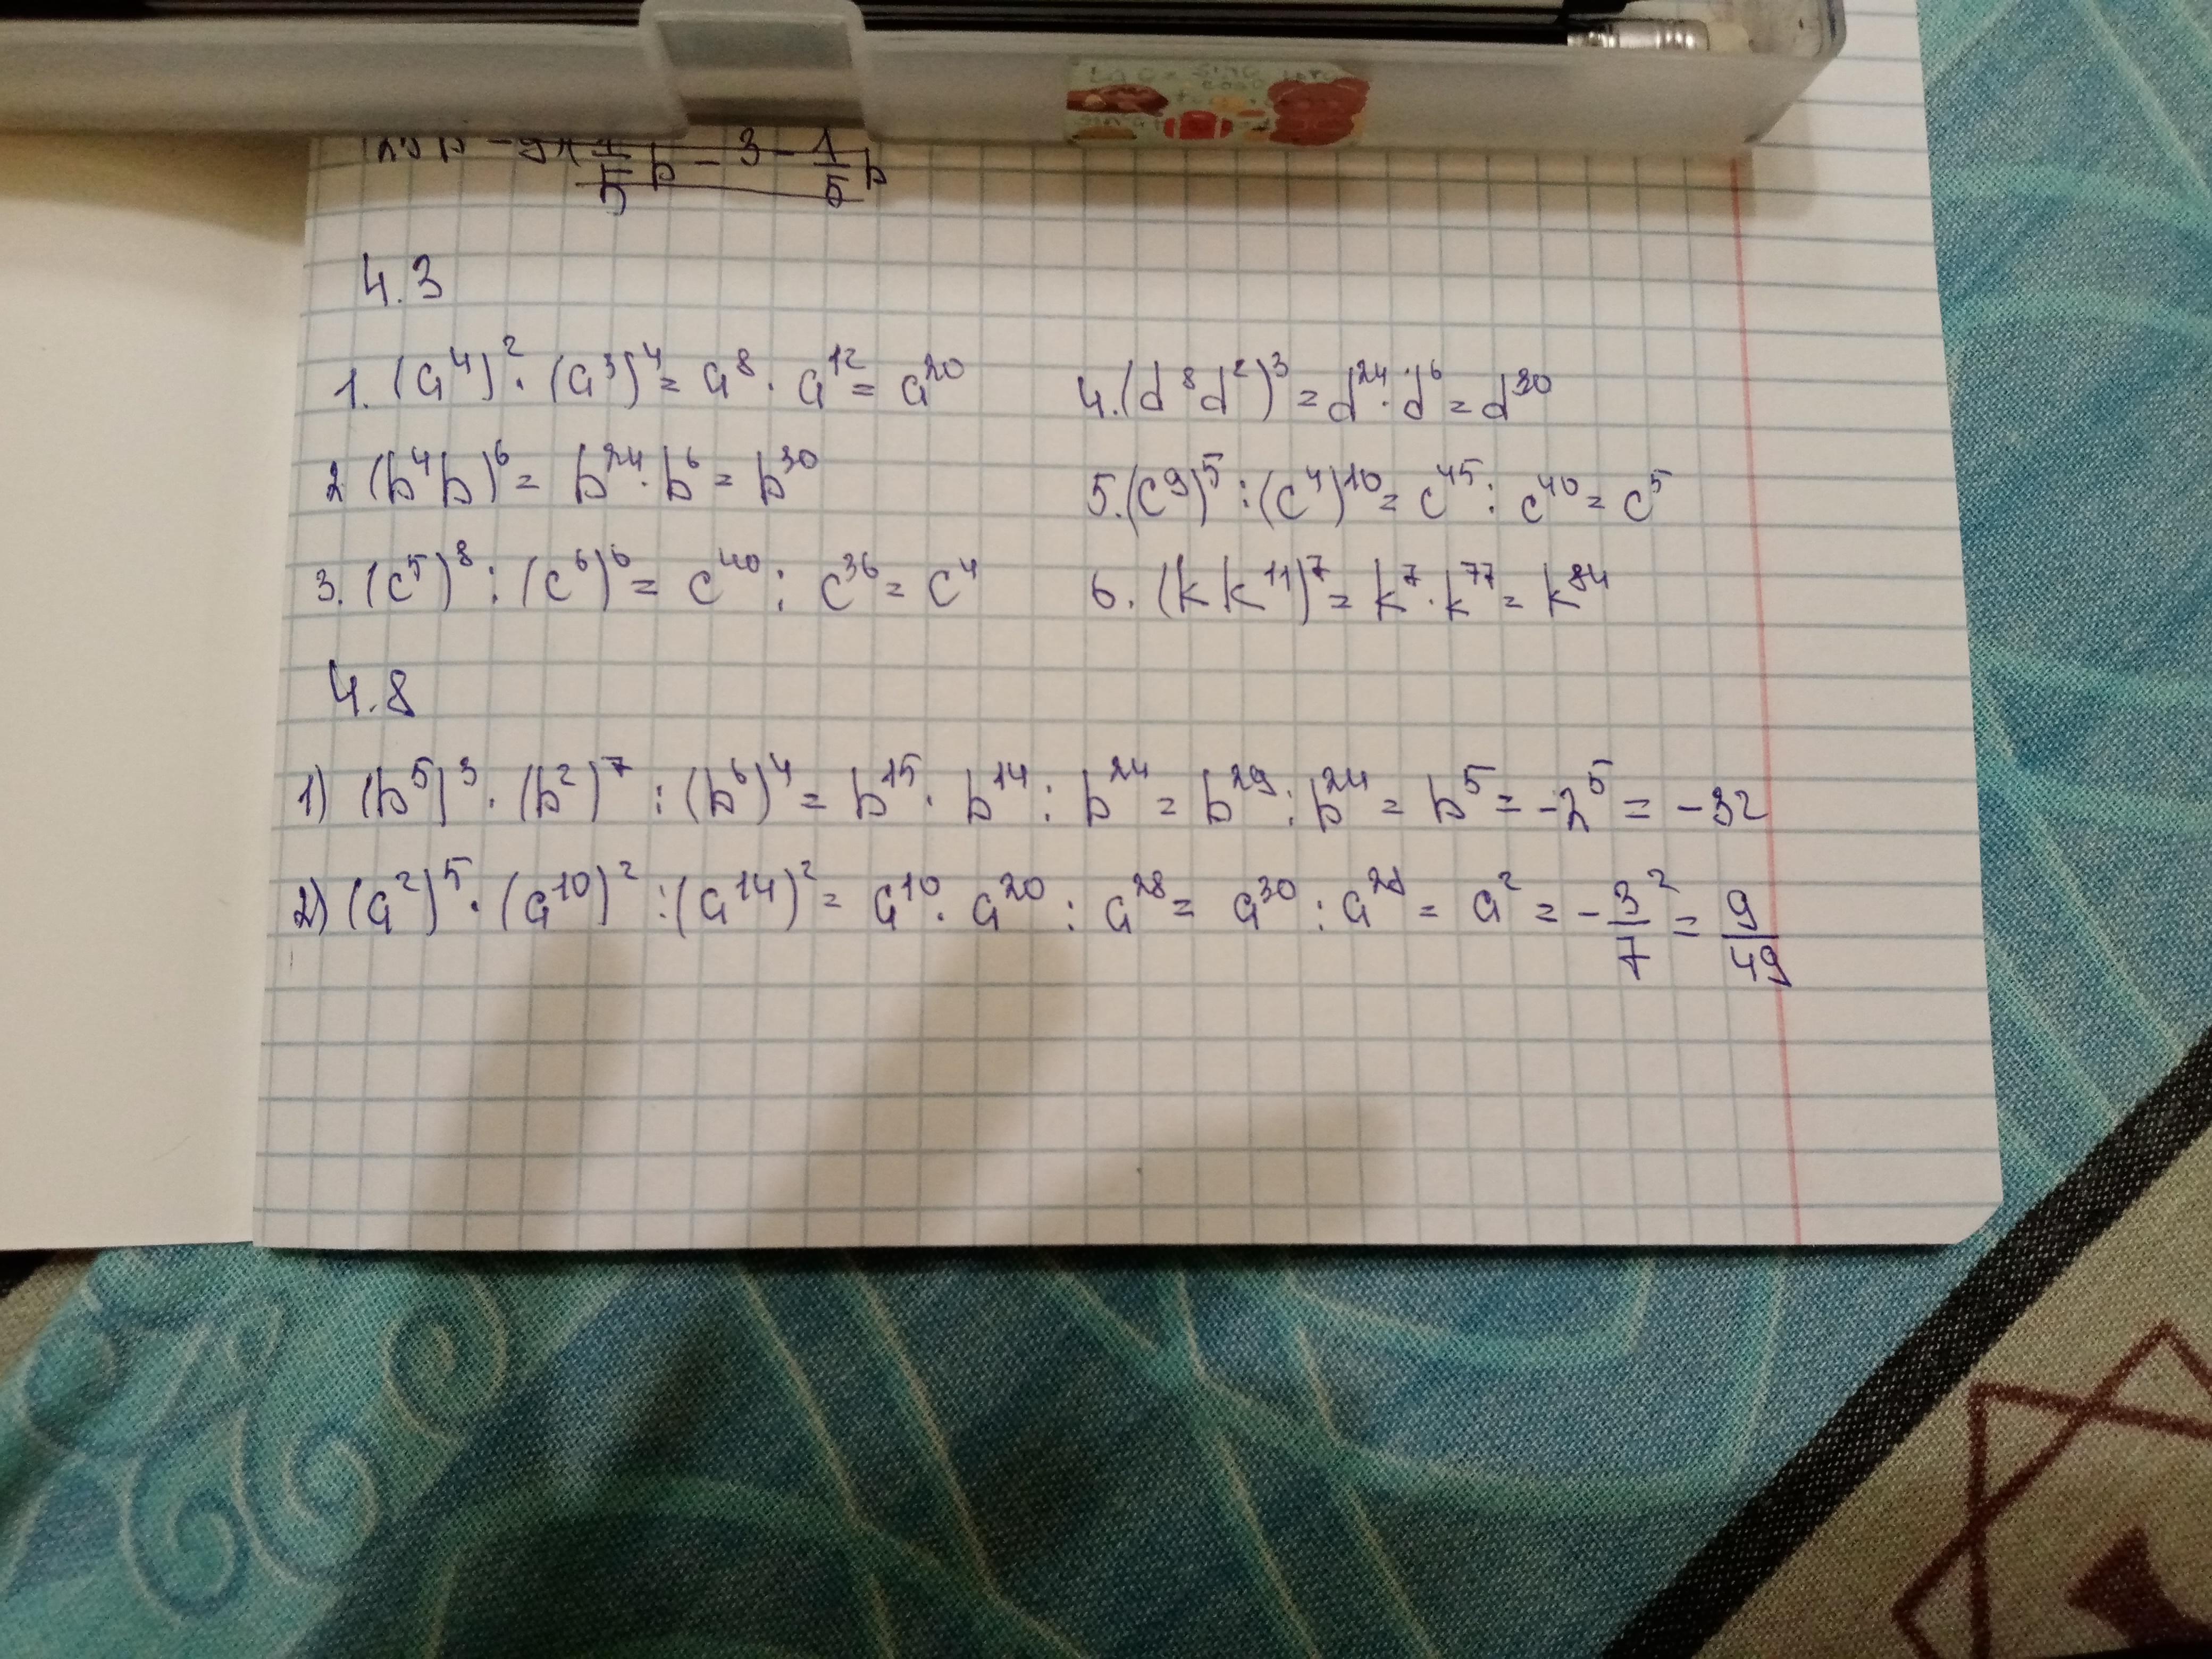 b - 3 - 1/5 b
4.3
1. (a⁴)² · (a³)⁴ = a⁸ · a¹² = a²⁰
2 (b⁴b)⁶ = b²⁴ · b⁶ = b³⁰
3. (c⁵)⁸ : (c⁶)⁶ = c⁴⁰ : c³⁶ = c⁴
4. (d⁸d²)³ = d²⁴ · d⁶ = d³⁰
5. (c⁹)⁵ : (c⁴)¹⁰ = c⁴⁵ : c⁴⁰ = c⁵
6. (k k¹¹)⁷ = k⁷ · k⁷⁷ = k⁸⁴
4.8
1) (b⁵)³ · (b²)⁷ : (b⁶)⁴ = b¹⁵ · b¹⁴ : b²⁴ = b²⁹ : b²⁴ = b⁵ = -2⁵ = -32
2) (a²)⁵ · (a¹⁰)² : (a¹⁴)² = a¹⁰ · a²⁰ : a²⁸ = a³⁰ : a²⁸ = a² = -3²/7 = 9/49